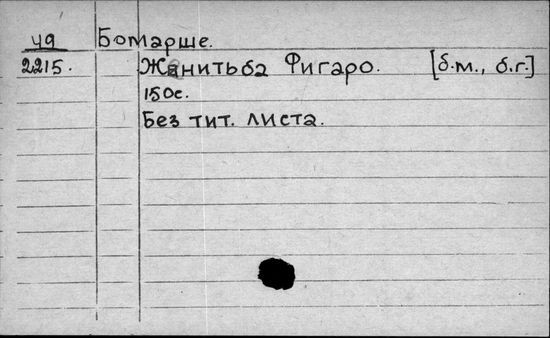 49 Бомарше.
2215. Женитьба Фигаро. [б.м., б.г.]
150с.
Без тит. листа.